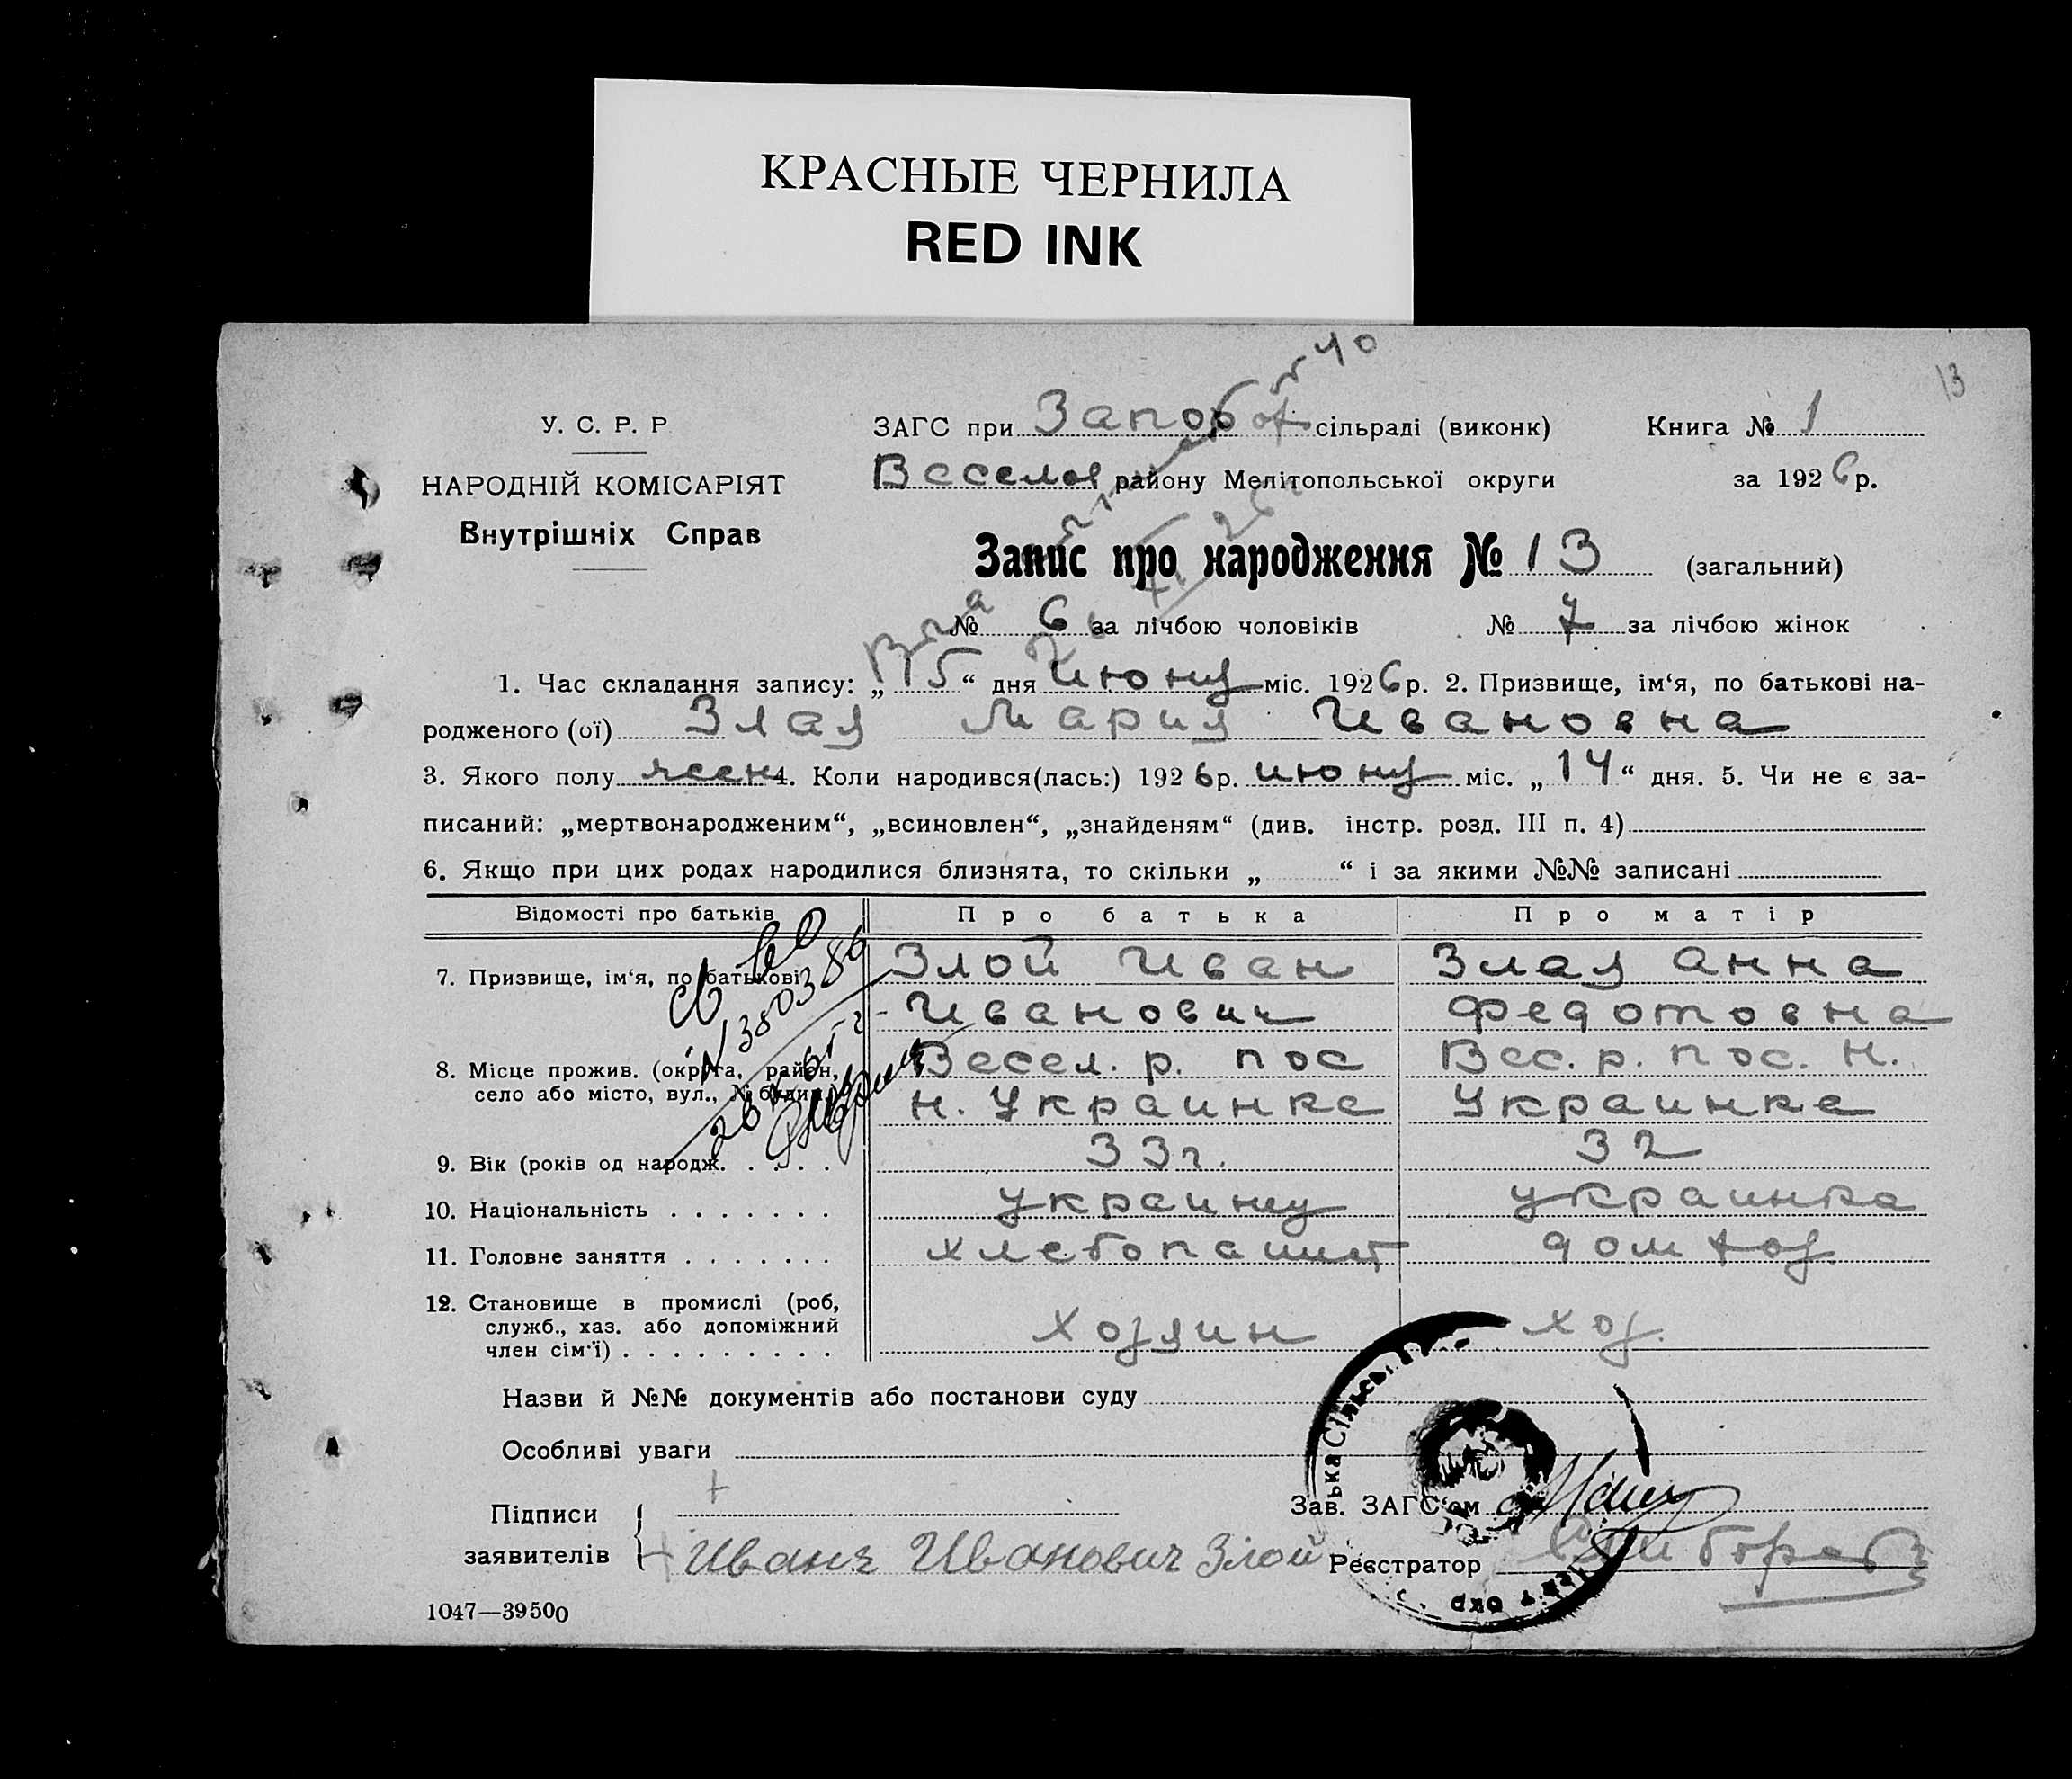 КРАСНЫЕ ЧЕРНИЛА
RED INK
13
У. С. Р. Р
НАРОДНІЙ КОМІСАРІЯТ
Внутрішніх Справ
ЗАГС при сільраді (виконк) Книга № 1
Весело району Мелітопольської округи за 1926р.
Запис про народження № 13 (загальний)
№ 6 за лічбою чоловіків № 7 за лічбою жінок
1. Час складання запису: „15“ дня июну міс. 1926р. 2. Призвище, ім‘я, по батькові на-
родженого (ої) Злая Мария Ивановна
3. Якого полу жен 4. Коли народився(лась:) 1926р. июну міс. „14“ дня. 5. Чи не є за-
писаний: „мертвонародженим“, „всиновлен“, „знайденям“ (див. інстр. розд. III п. 4)
6. Якщо при цих родах народилися близнята, то скільки „ “ і за якими №№ записані
Відомості про батьків Про батька Про матір
7. Призвище, ім‘я, по батькові Злой Иван Злая Анна
Иванович Федотовна
8. Місце прожив. (округа, район, Весел. р. пос Вес. р. пос. Н.
село або місто, вул., № будин. Н. Украинка Украинка
9. Вік (років од народж. . . . . 33 г. 32
10. Національність . . . . . . . украинец украинка
11. Головне заняття . . . . . . . хлебопашец дом хоз.
12. Становище в промислі (роб,
служб., хаз. або допоміжний Хозяин хоз.
член сім‘ї) . . . . . . . . .
Назви й №№ документів або постанови суду
Особливі уваги
Підписи Зав. ЗАГС‘ом
заявителів Иванъ Иванович Злой Реєстратор
1047—39500